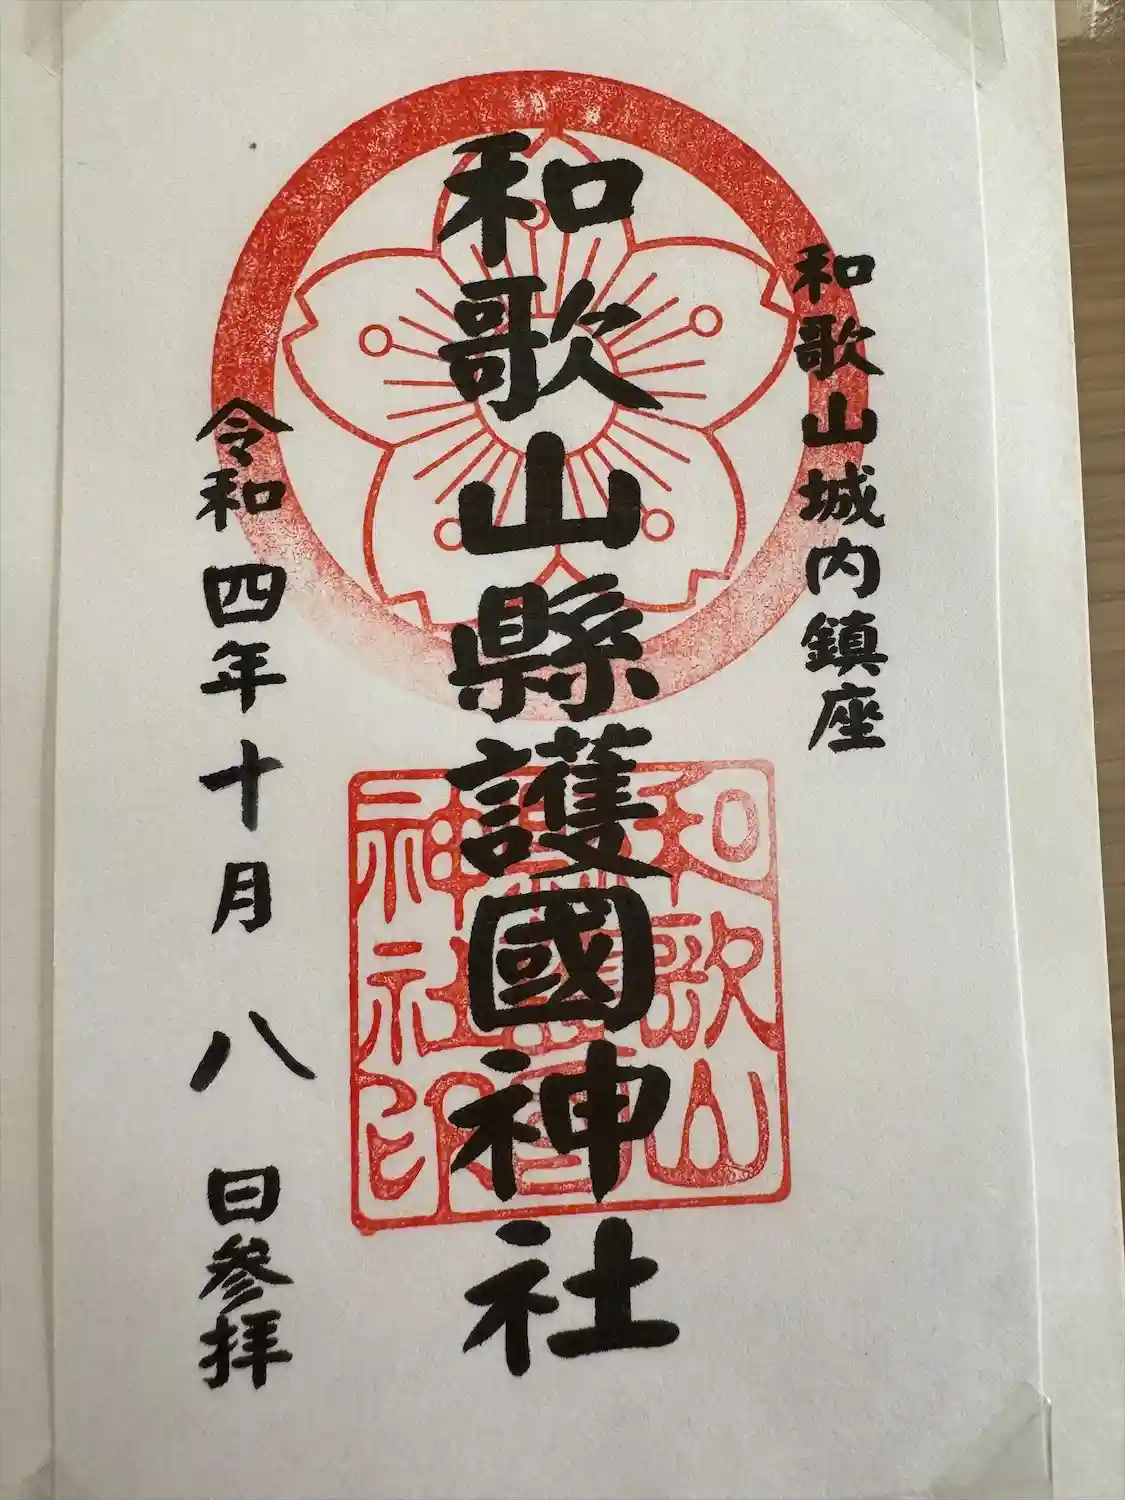 和歌山城内鎮座
和歌山縣護國神社
令和四年十月八日参拝
和歌山
神社印